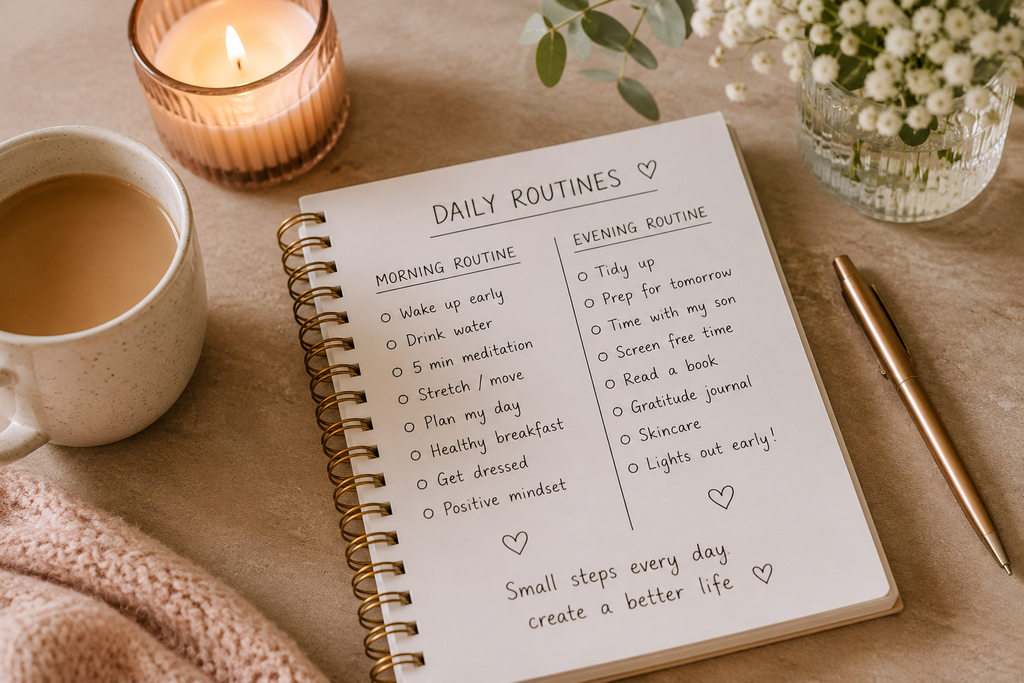 DAILY ROUTINES ♡
MORNING ROUTINE
Wake up early
Drink water
5 min meditation
Stretch / move
Plan my day
Healthy breakfast
Get dressed
Positive mindset
EVENING ROUTINE
Tidy up
Prep for tomorrow
Time with my son
Screen free time
Read a book
Gratitude journal
Skincare
Lights out early!
Small steps every day.
create a better life ♡